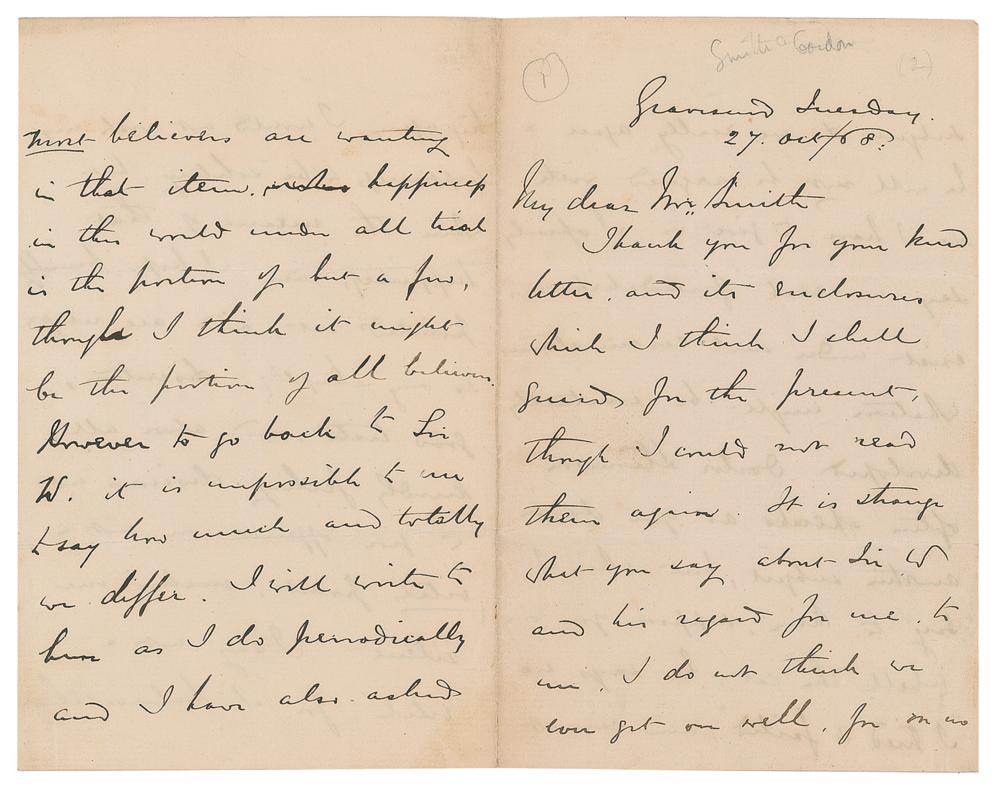 Smith & Gordon
(2)
Gravesend Tuesday.
27. Oct/68.
My dear Mrs Smith
Thank you for your kind
letter, and its enclosures
which I think I shall
guard for the present,
though I could not read
them again. It is strange
what you say about Sir W
and his regard for me, to
me, I do not think we
ever get on well, for on no
most believers are wanting
in that item. happiness
in this world under all trial
is the portion of but a few,
though I think it might
be the portion of all believers.
However to go back to Sir
W. it is impossible to me
to say how much and totally
we differ. I will write to
him as I do periodically
and I have also asked